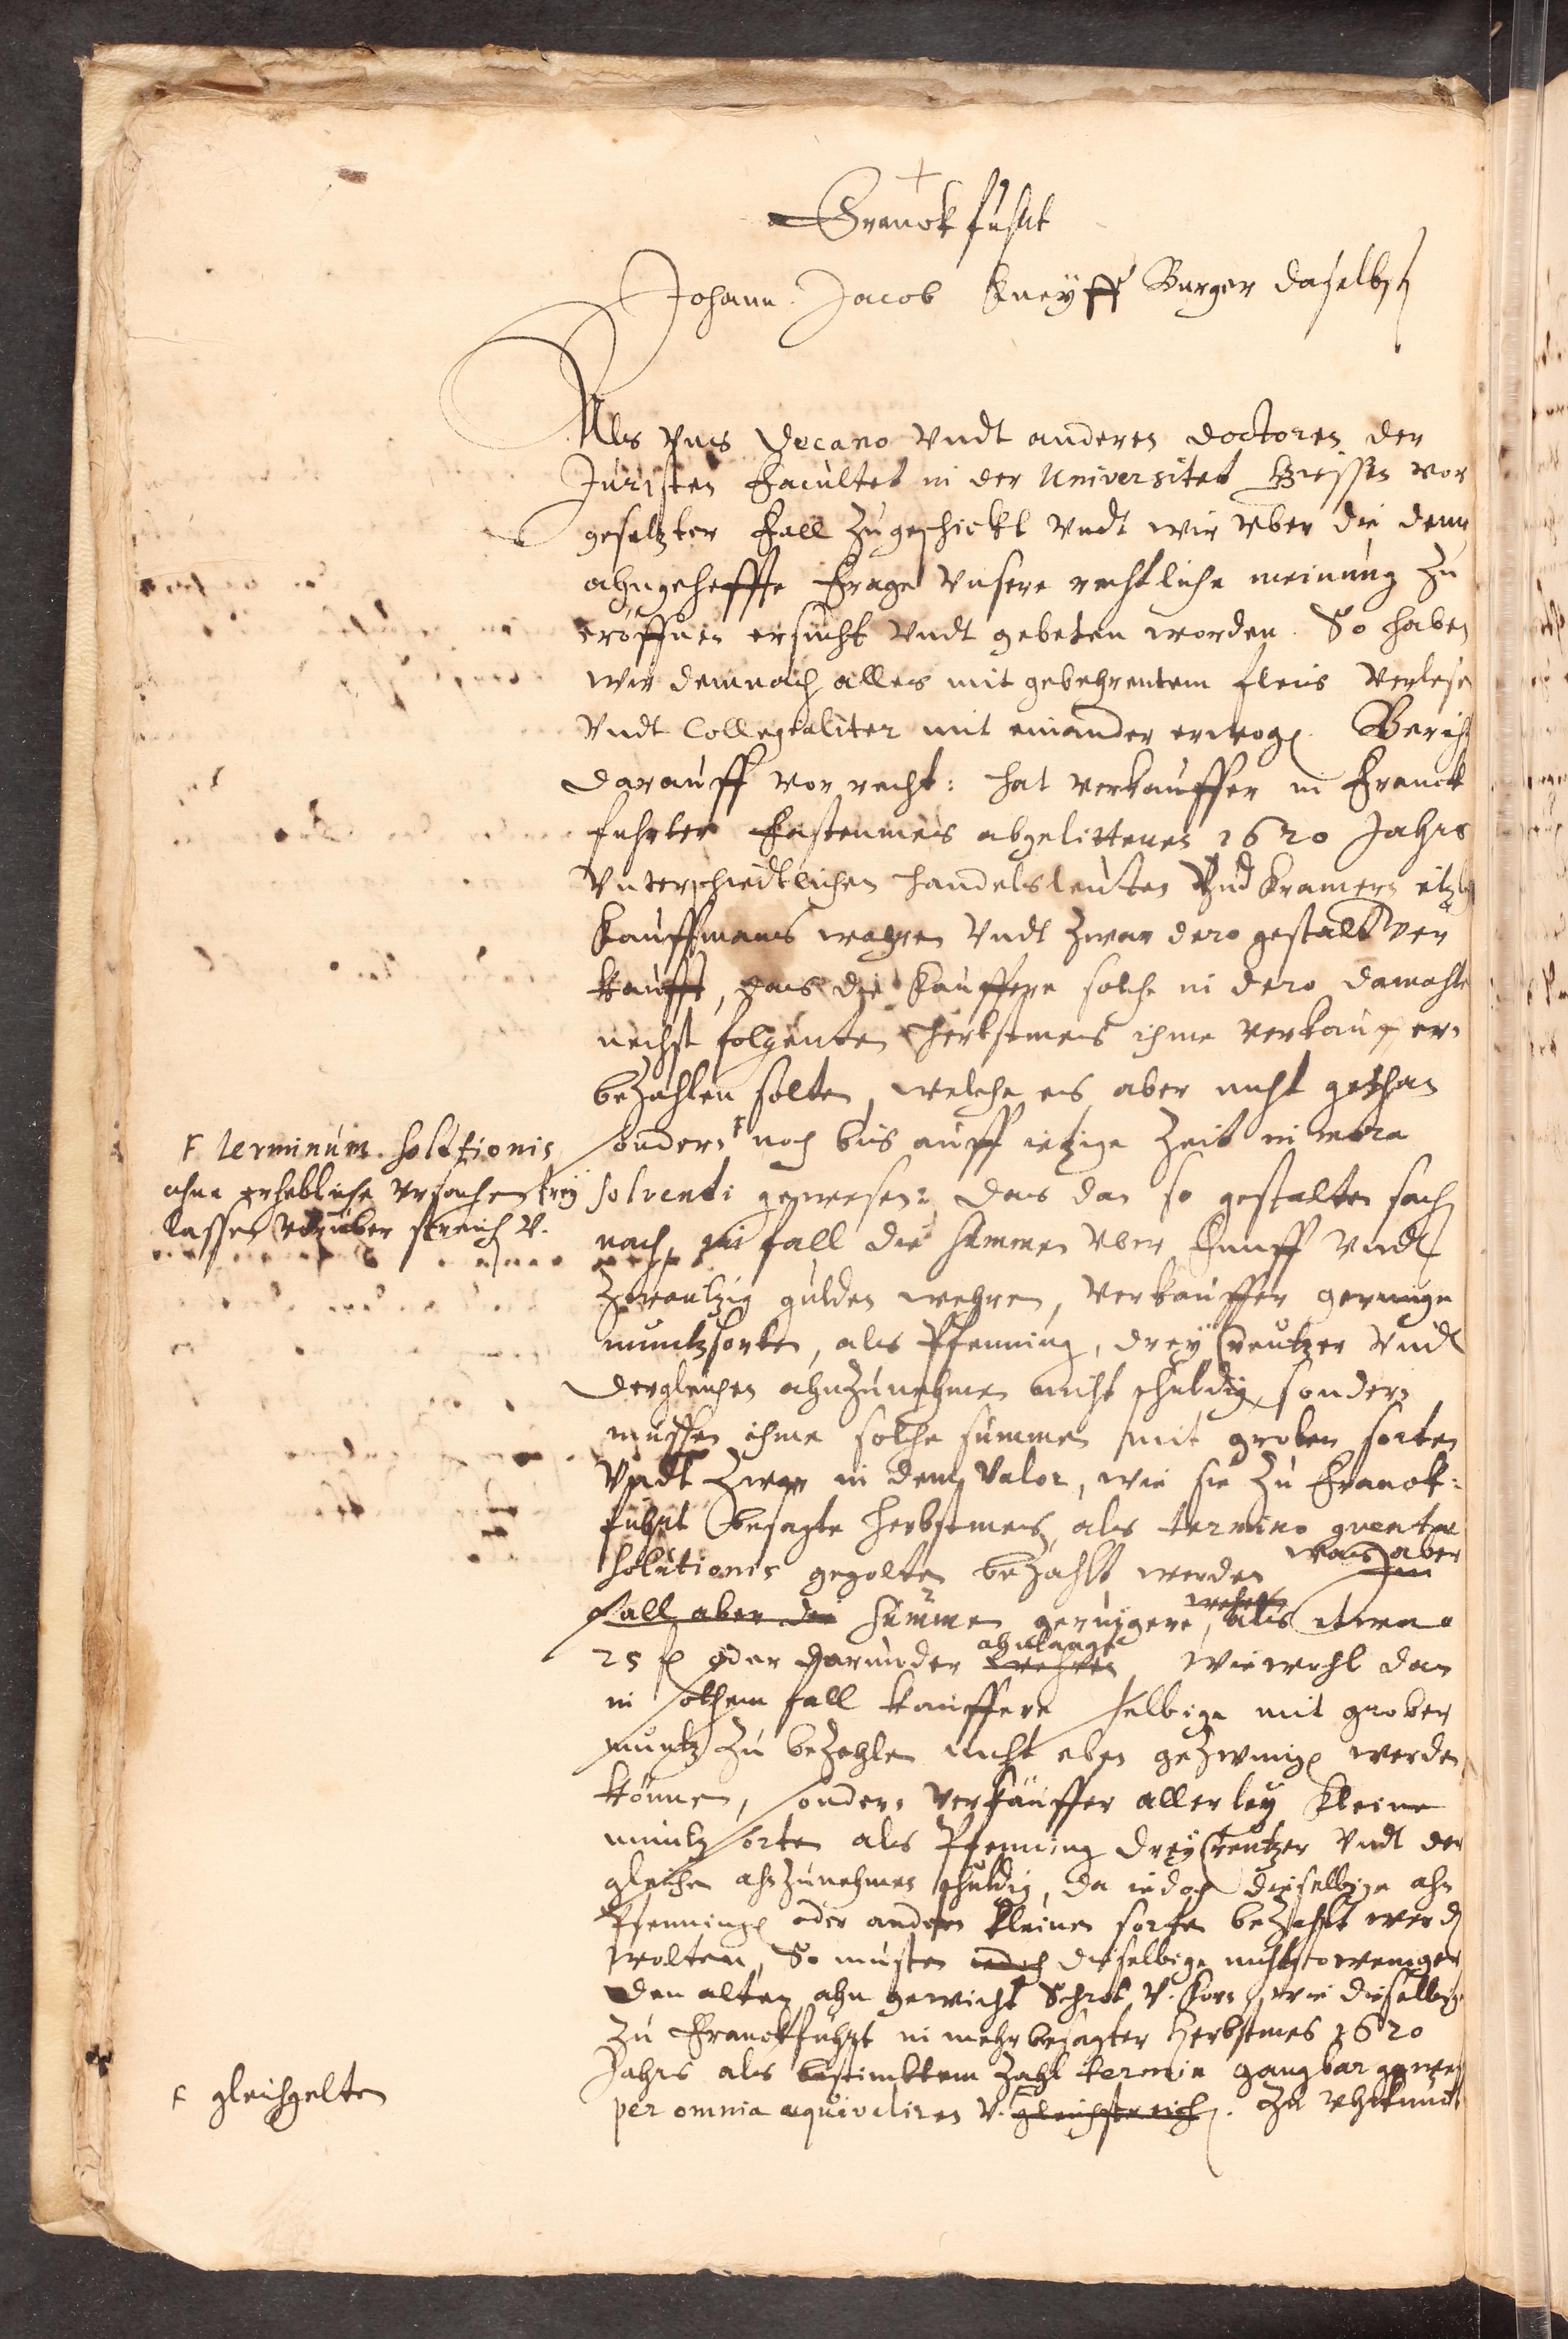 Franckfuhrt
Johann Jacob Kneÿff Burger daselbst
Als Vns Decano Vndt anderen doctoren der
Juristen Facultet in der Universitet Giessen vor
gesetzter Fall zugeschickt Vndt wir vber die demm
ahngeheffte Frage Vnsere rechtliche meinung zu
eröffnen ersucht Vndt gebeten worden. So haben
wir demnach alles mit gebehrentem fleis Verlesen
Vndt Collegialiter mit einander erwogen
darauff vor recht: hat verkauffer in Franck
fuhrter Fastenmes abgelittenes 1620 Jahrs
Vnterschiedtlichen handelsleuten Vnd Kramern etzlich
Kauffmans wahren Vndt zwar dero gestalt ver
kaufft, das die Kauffere solche in dero damahls
nechst folgenten Herbstmes ihme verkauffern
bezahlen solten, welche es aber nicht gethan
sondern noch bis auff ietzige Zeit in mora
solvendi gewesen: das dan so gestalten sach
nach, im fall die summen vber Funff Vndt
zwantzig gulden wehren, Verkauffer geringe
muntzsorten, als Pfenning, dreÿ Creutzer Vndt
dergleichen ahnzunehmen nicht schuldig, sondern
mussen ihme solche summen mit groben sorten
Vndt zwar in dem Valor, wie sie zu Franck-
fuhrt besagte Herbstmes als termino
solutionis gegolten bezahlt werden was aber
fall aber die summen geringere, als etwa
25 fl oder darunder ahnlangt wehren, Wiewohl dan
in solchem fall kauffere selbige mit grober
muntz zu bezahlen nicht eben gezwungen werden
können, sondern Verkäuffer allerleÿ kleine
muntz sorten als Pfenning dreÿ Creutzer Vndt der
gleichen ahnzunehmen schuldig, da iedoch dieselbige ahn
Pfenningen oder andern kleinen sorten bezahlt werden
wolten, So musten iedoch dieselbige nichtsto weniger
den alten ahn gewicht Schrot V. Korn, wie dieselbige
zu Franckfuhrt in mehr besagter Herbstmes 1620
Jahrs als bestimbtem Zahl termin gangbar gewesen
per omnia aequivaliren V. gleichstreichen. Zu Vhrkundt
F terminum solutionis
ohne erhebliche Vrsachen freÿ
lassen vorüber streich V.
F gleichgelten